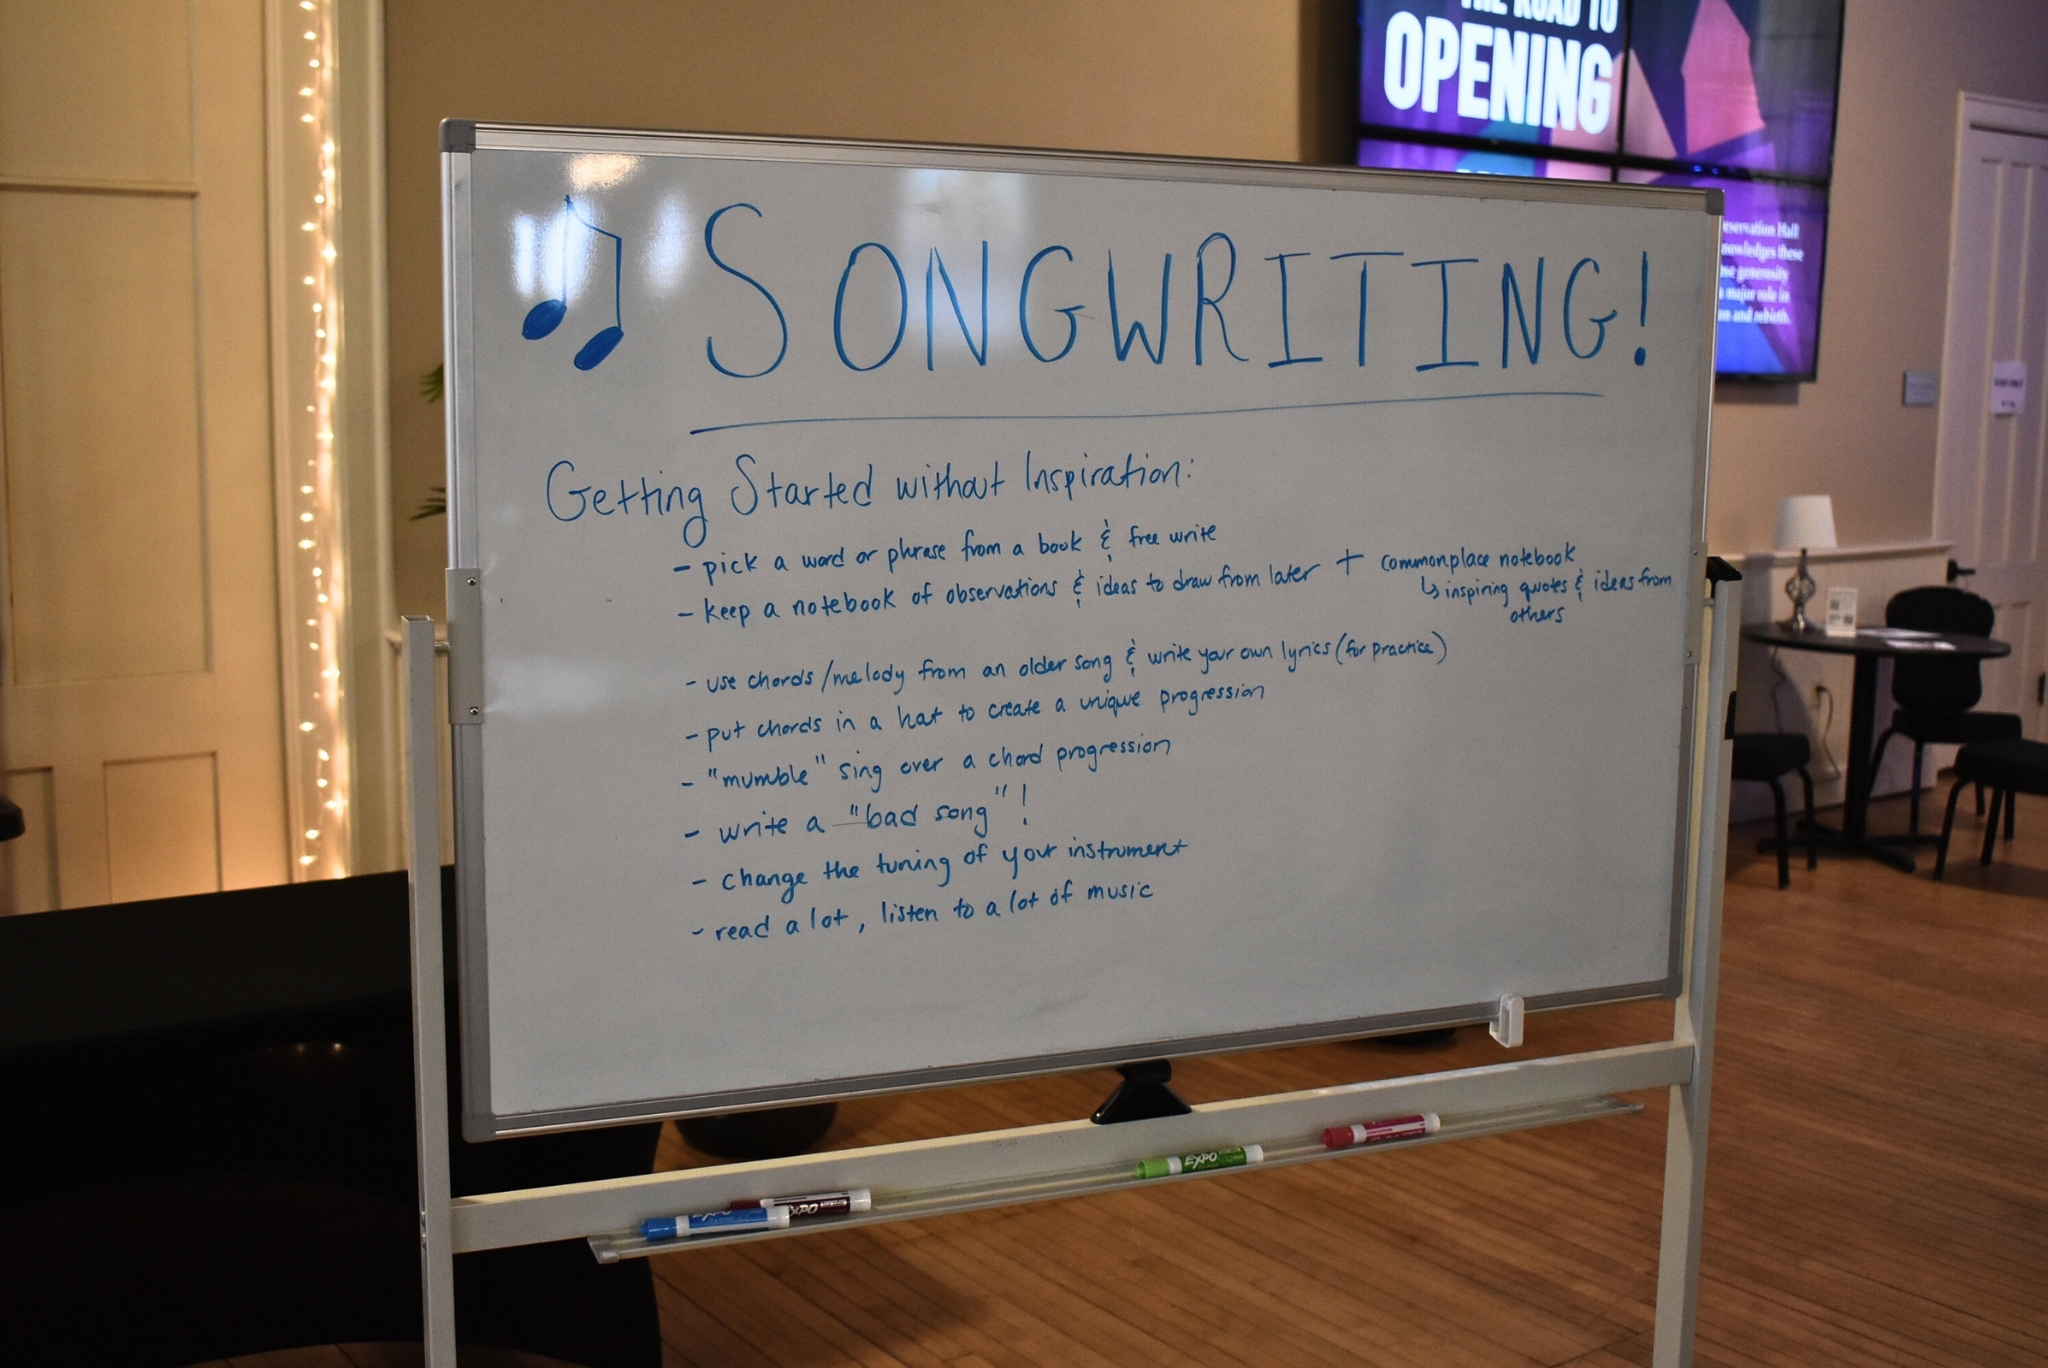 THE ROAD TO
OPENING
eservation Hall
nowledges these
se generosity
major role in
and rebirth.
SONGWRITING!
Getting Started without Inspiration:
- pick a word or phrase from a book & free write
- keep a notebook of observations & ideas to draw from later + commonplace notebook
↳ inspiring quotes & ideas from
others
- use chords/melody from an older song & write your own lyrics (for practice)
- put chords in a hat to create a unique progression
- "mumble" sing over a chord progression
- write a "bad song"!
- change the tuning of your instrument
- read a lot, listen to a lot of music
EXPO
EXPO
EXPO